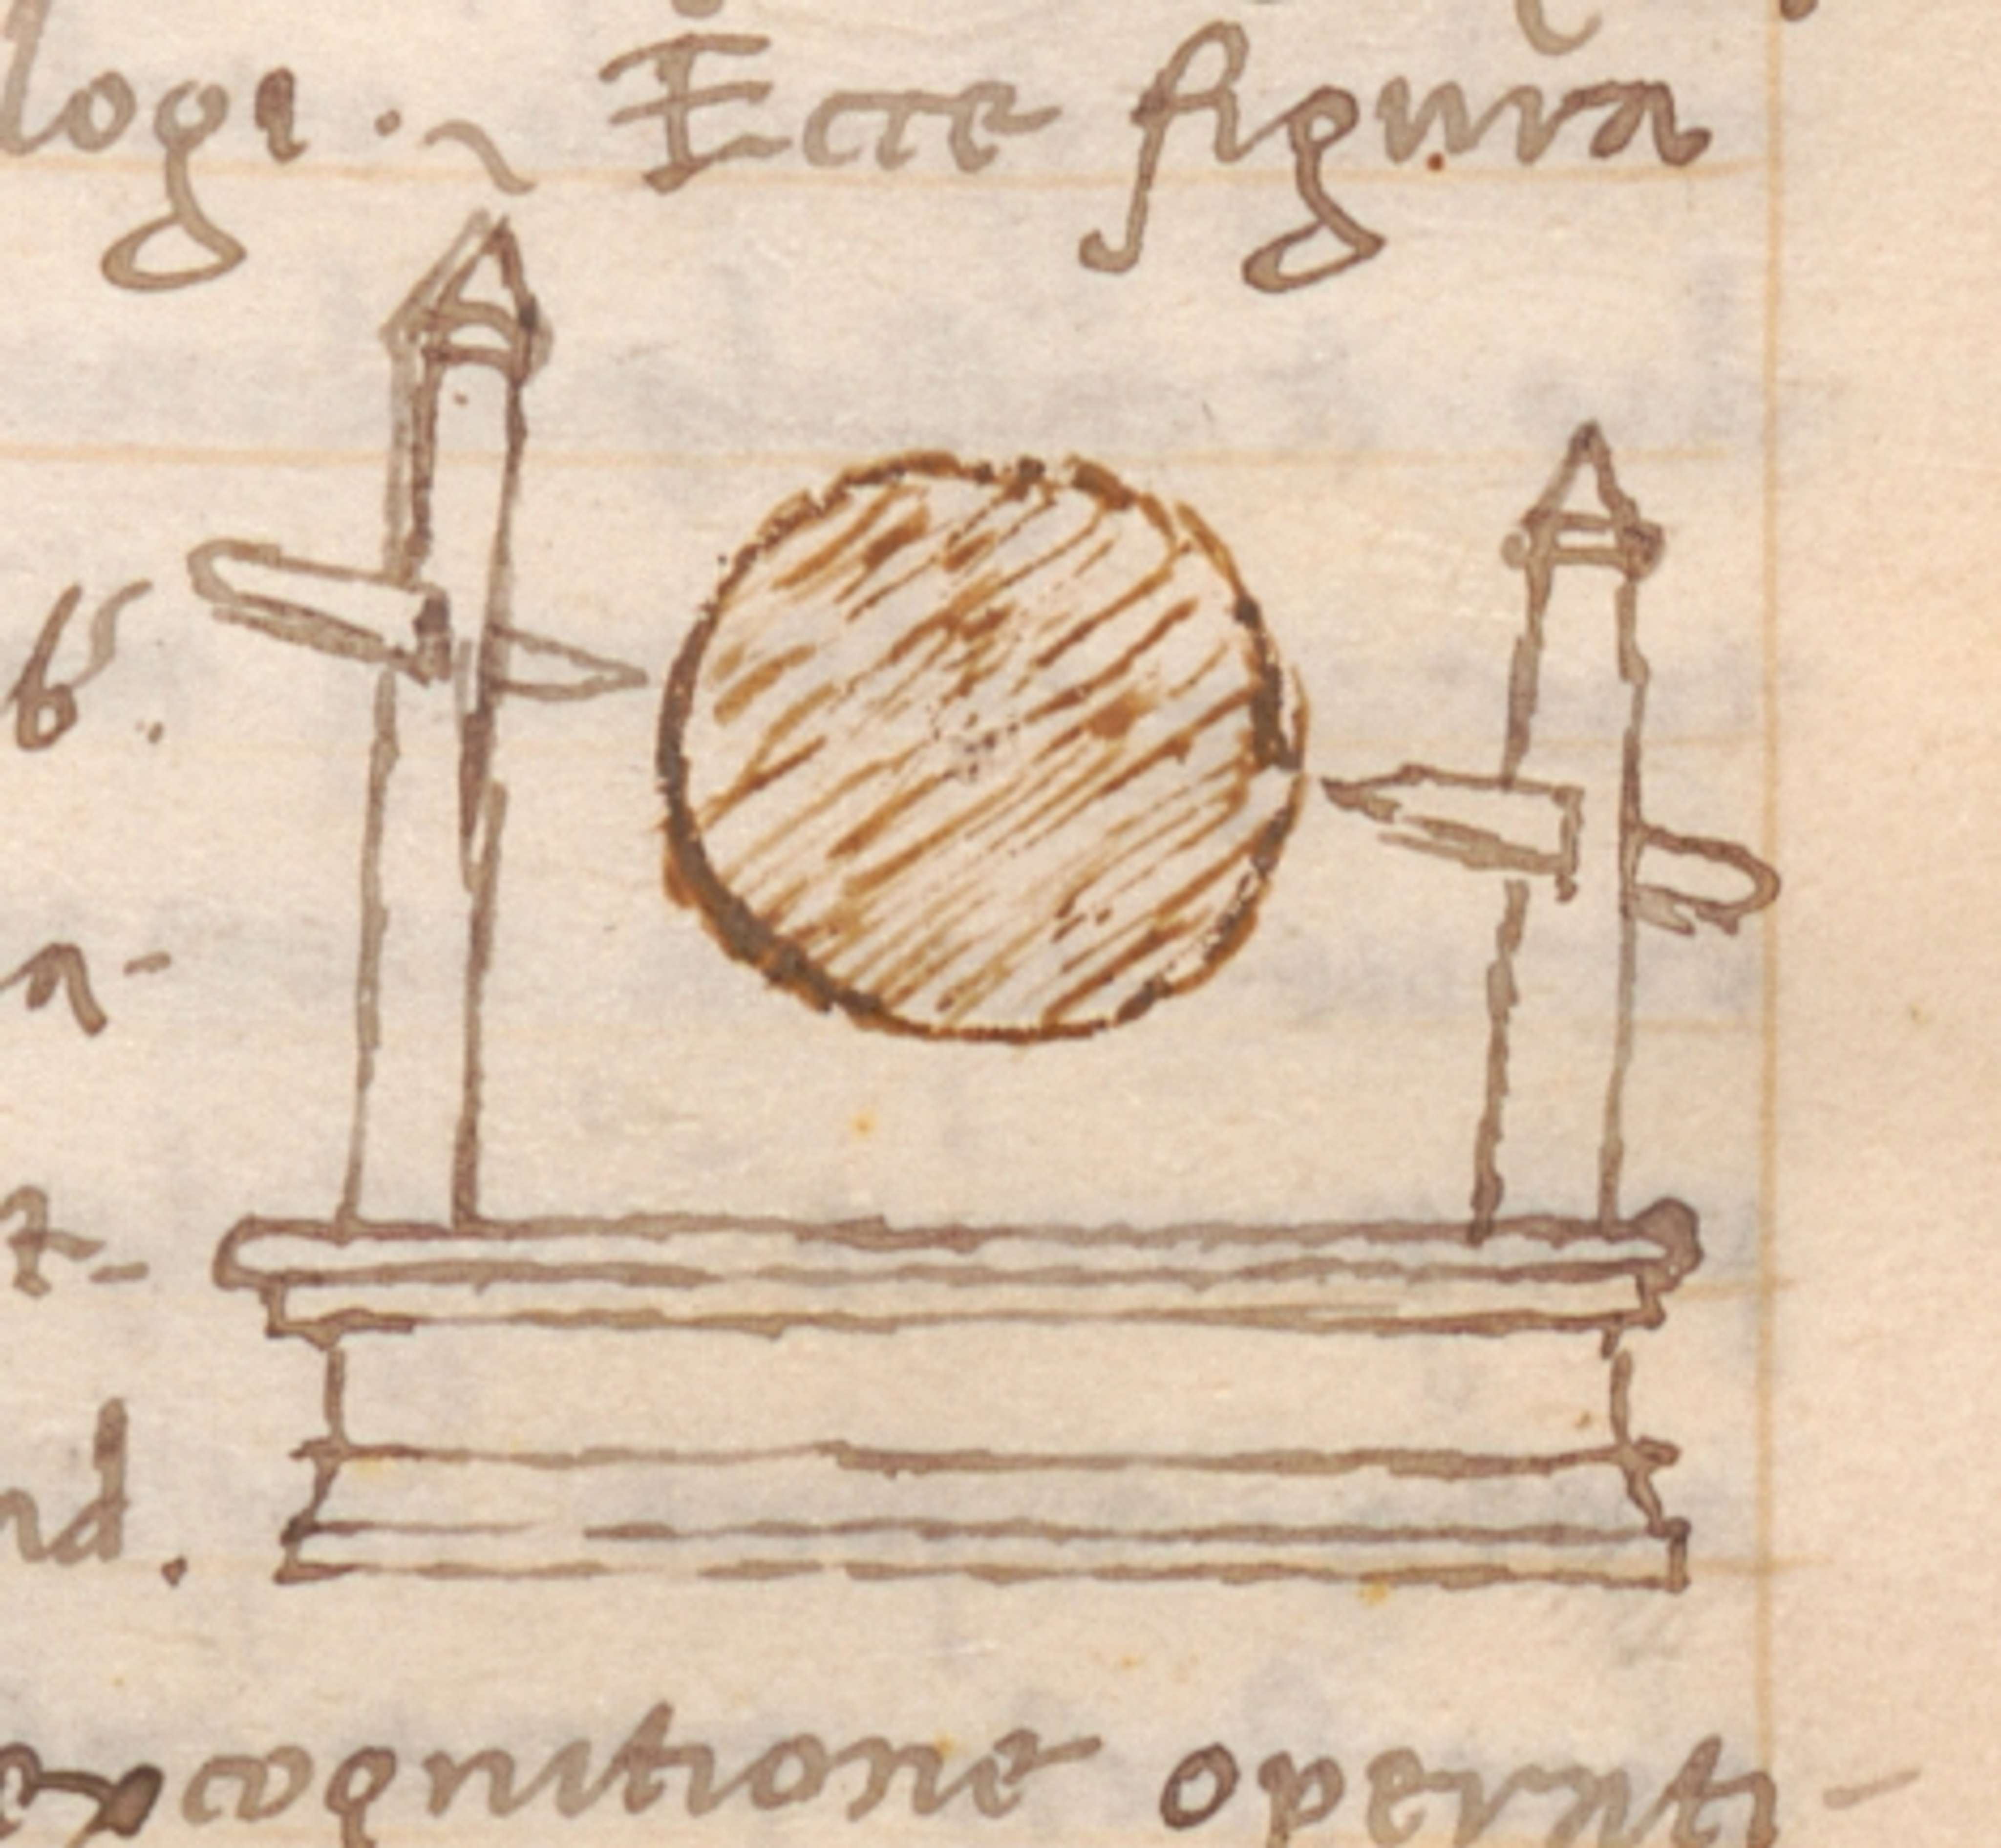 logi. Ecce figura
6.
a-
t-
nd.
excognitione operati-